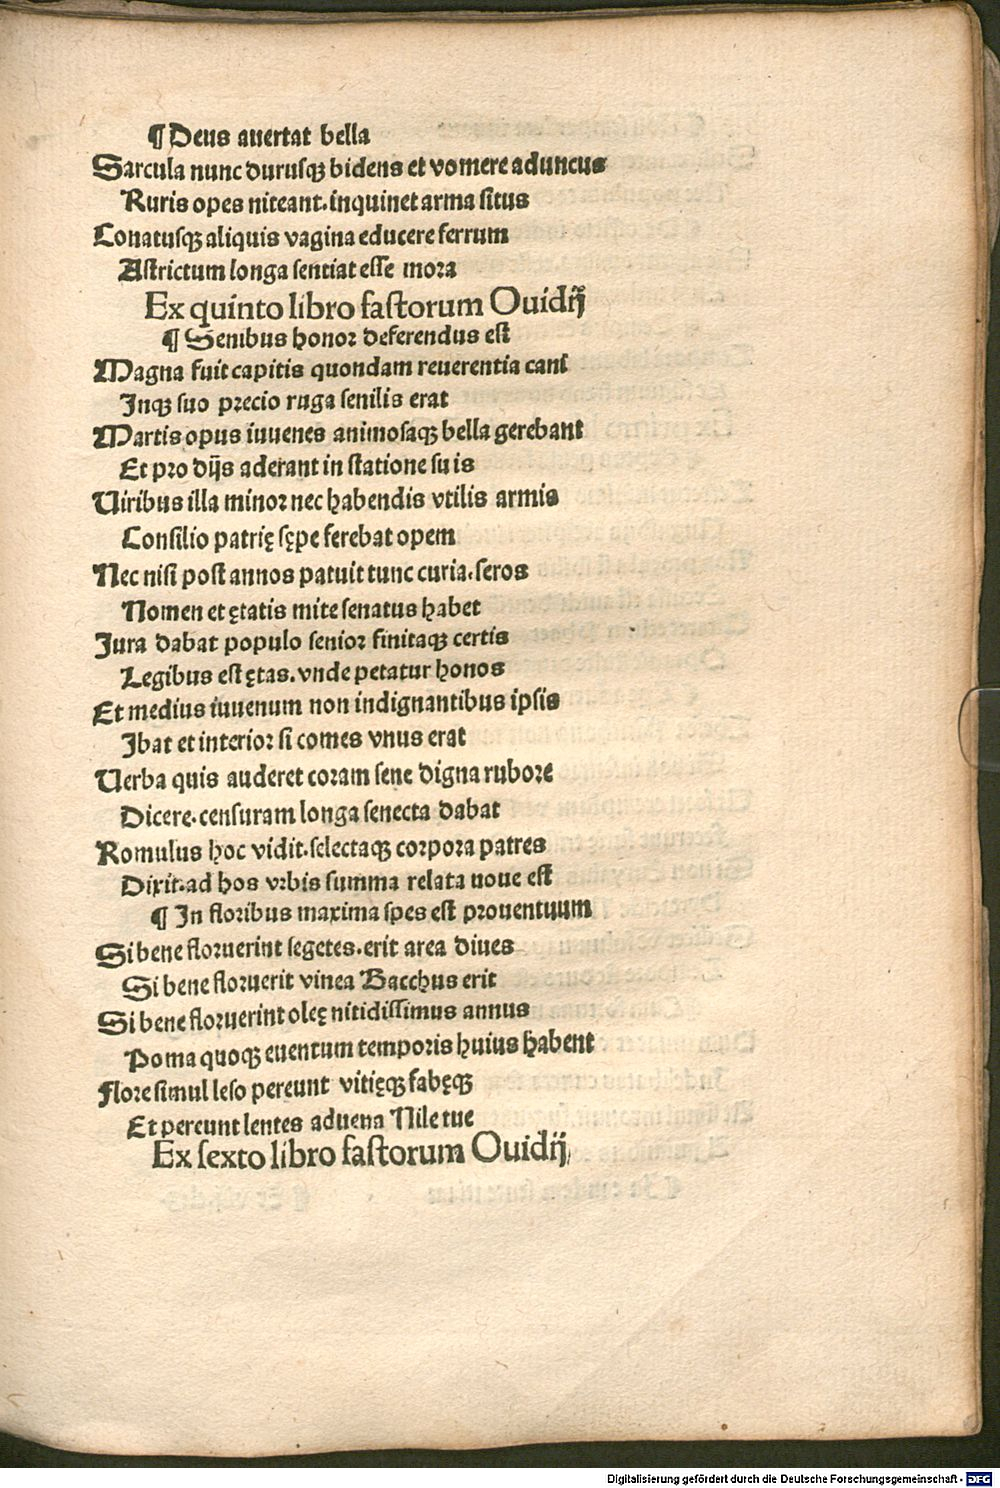 ¶ Deus auertat bella
Sarcula nunc durusqȝ bidens et vomere aduncus
Ruris opes niteant. inquinet arma situs
Conatusqȝ aliquis vagina educere ferrum
Astrictum longa sentiat esse mora
Ex quinto libro fastorum Ouidij
¶ Senibus honor deferendus est
Magna fuit capitis quondam reuerentia cani
Inqȝ suo precio ruga senilis erat
Martis opus iuuenes animosaqȝ bella gerebant
Et pro dijs aderant in statione suis
Uiribus illa minor nec habendis vtilis armis
Consilio patrię sępe ferebat opem
Nec nisi post annos patuit tunc curia. seros
Nomen et ętatis mite senatus habet
Jura dabat populo senior finitaqȝ certis
Legibus est ętas. vnde petatur honos
Et medius iuuenum non indignantibus ipsis
Ibat et interior si comes vnus erat
Uerba quis auderet coram sene digna rubore
Dicere. censuram longa senecta dabat
Romulus hoc vidit. selectaqȝ corpora patres
Dixit. ad hos vrbis summa relata noue est
¶ In floribus maxima spes est prouentuum
Si bene floruerint segetes. erit area diues
Si bene floruerit vinea Bacchus erit
Si bene floruerint oleę nitidissimus annus
Poma quoqȝ euentum temporis huius habent
Flore simul leso pereunt vitięqȝ fabęqȝ
Et pereunt lentes aduena Nile tue
Ex sexto libro fastorum Ouidij
Digitalisierung gefördert durch die Deutsche Forschungsgemeinschaft - DFG